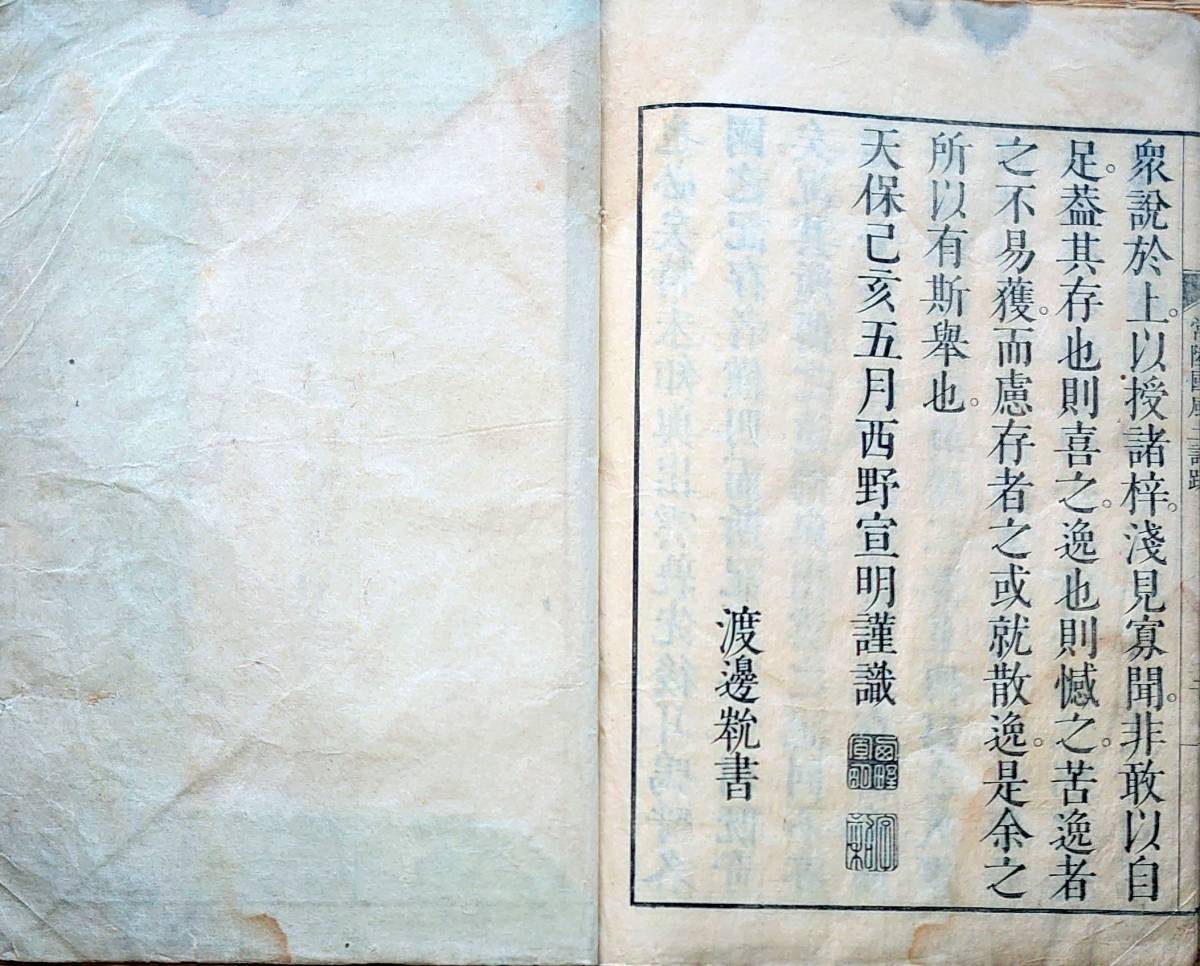 常陸國風土記跋
衆說於上。以授諸梓。淺見寡聞。非敢以自
足。葢其存也則喜之。逸也則憾之。苦逸者
之不易獲。而慮存者之或就散逸。是余之
所以有斯舉也。
天保己亥五月西野宣明謹識
渡邊㲋書